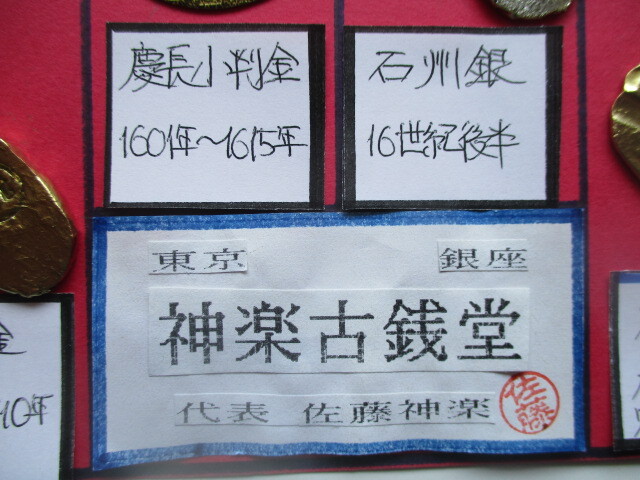 慶長小判金
1601年～1615年
石州銀
16世紀後半
東京 銀座
神楽古銭堂
代表 佐藤神楽
佐藤
金
10年